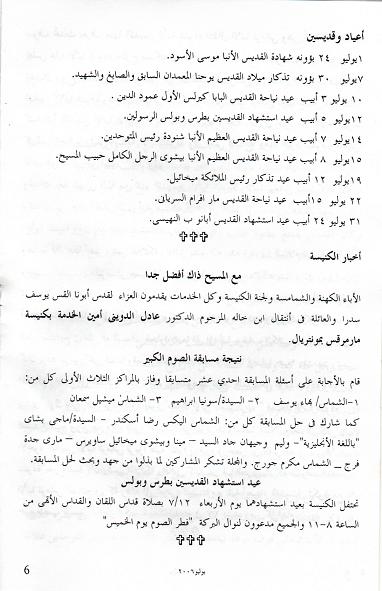 أعياد وقديسين
١ يوليو ٢٤ بؤونه شهادة القديس الأنبا موسى الأسود.
٧ يوليو ٣٠ بؤونه تذكار ميلاد القديس يوحنا المعمدان السابق والصابغ والشهيد.
١٠ يوليو ٣ أبيب عيد نياحة القديس البابا كيرلس الأول عمود الدين.
١٢ يوليو ٥ أبيب عيد استشهاد القديسين بطرس وبولس الرسولين.
١٤ يوليو ٧ أبيب عيد نياحة القديس العظيم الأنبا شنودة رئيس المتوحدين.
١٥ يوليو ٨ أبيب عيد نياحة القديس العظيم الأنبا بيشوى الرجل الكامل حبيب المسيح.
١٩ يوليو ١٢ أبيب عيد تذكار رئيس الملائكة ميخائيل.
٢٢ يوليو ١٥ أبيب عيد نياحة القديس مار افرام السريانى.
٣١ يوليو ٢٤ أبيب عيد استشهاد القديس أبانو ب النهيسى.
أخبار الكنيسة
مع المسيح ذاك أفضل جدا
الأباء الكهنة والشمامسة ولجنة الكنيسة وكل الخدمات يقدمون العزاء لقدس أبونا القس يوسف
سدرا والعائلة فى أنتقال ابن خاله المرحوم الدكتور عادل الدوينى أمين الخدمة بكنيسة
مارمرقس بمونتريال.
نتيجة مسابقة الصوم الكبير
قام بالأجابة على أسئلة المسابقة احدي عشر متسابقا وفاز بالمراكز الثلاث الأولى كل من:
١-الشماس/ بهاء يوسف ٢- السيدة/سونيا ابراهيم ٣- الشماس ميشيل سمعان
كما شارك فى حل المسابقة كل من: الشماس اليكس رضا أسكندر - السيدة/ماجى بشاى
"باللغة الأنجليزية"- وليم وجيهان جاد السيد – مينا وبيشوى ميخائيل ساويرس – مارى جدة
فرج – الشماس مكرم جورج. والمجلة تشكر المشاركين لما بذلوا من جهد وبحث لحل المسابقة.
عيد استشهاد القديسين بطرس وبولس
تحتفل الكنيسة بعيد استشهادهما يوم الأربعاء ٧/١٢ بصلاة قداس اللقان والقداس الألهى من
الساعة ٨-١١ والجميع مدعوون لنوال البركة "فطر الصوم يوم الخميس"
يوليو ٢٠٠٦
6